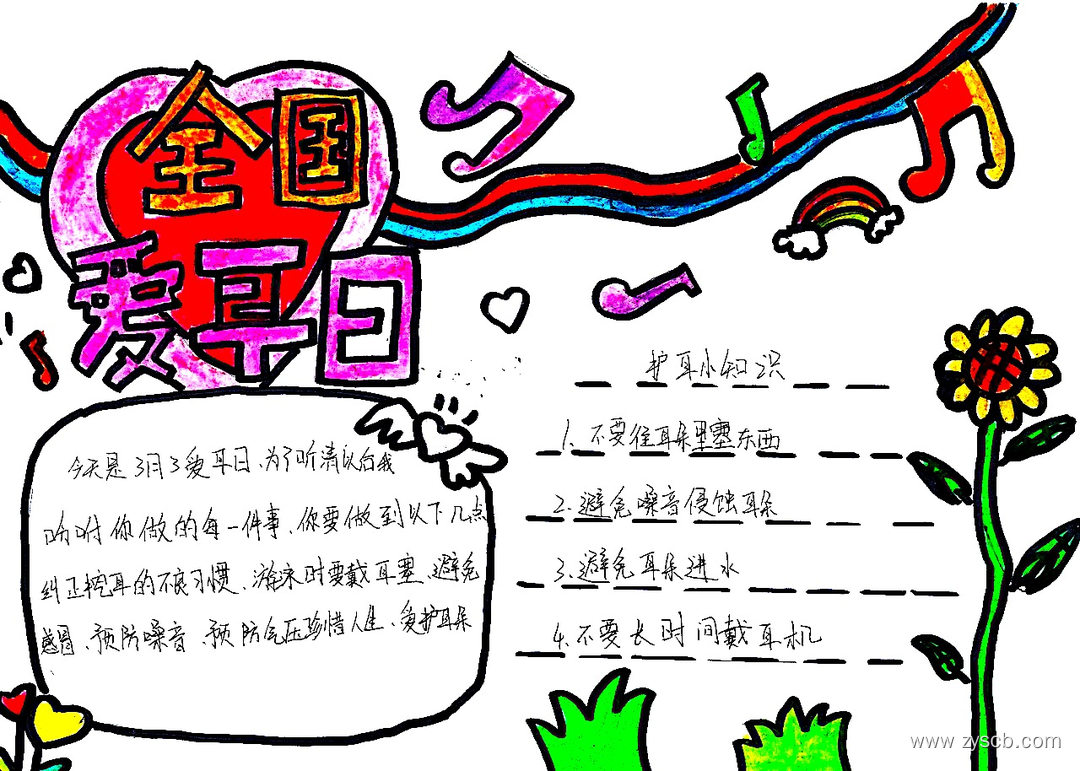 全国
爱耳日
护耳小知识
1、不要往耳朵里塞东西
2、避免噪音侵蚀耳朵
3、避免耳朵进水
4、不要长时间戴耳机
今天是3月3爱耳日、为了听清以后我
吩咐你做的每一件事、你要做到以下几点
纠正挖耳的不良习惯、游泳时要戴耳塞、避免
感冒、预防噪音、预防气压珍惜人生、爱护耳朵
www.zyscb.com